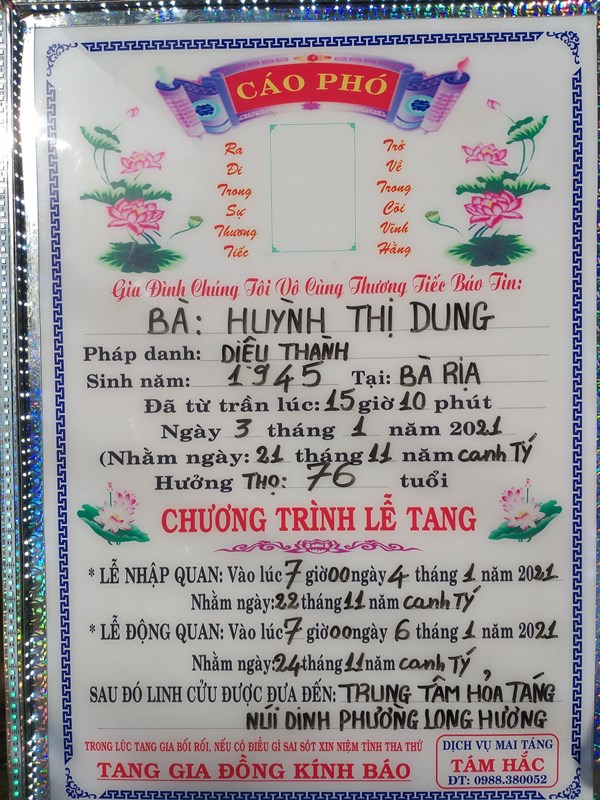 CÁO PHÓ
Ra
Đi
Trong
Sự
Thương
Tiếc
Trở
Về
Trong
Cõi
Vĩnh
Hằng
Gia Đình Chúng Tôi Vô Cùng Thương Tiếc Báo Tin:
BÀ: HUỲNH THỊ DUNG
Pháp danh: DIỆU THÀNH
Sinh năm: 1945 Tại: BÀ RỊA
Đã từ trần lúc: 15 giờ 10 phút
Ngày 3 tháng 1 năm 2021
(Nhằm ngày: 21 tháng 11 năm canh TÝ
Hưởng THỌ: 76 tuổi
CHƯƠNG TRÌNH LỄ TANG
* LỄ NHẬP QUAN: Vào lúc 7 giờ 00 ngày 4 tháng 1 năm 2021
Nhằm ngày: 22 tháng 11 năm canh TÝ
* LỄ ĐỘNG QUAN: Vào lúc 7 giờ 00 ngày 6 tháng 1 năm 2021
Nhằm ngày: 24 tháng 11 năm canh TÝ
SAU ĐÓ LINH CỬU ĐƯỢC ĐƯA ĐẾN: TRUNG TÂM HỎA TÁNG
NÚI DINH PHƯỜNG LONG HƯƠNG
TRONG LÚC TANG GIA BỐI RỐI, NẾU CÓ ĐIỀU GÌ SAI SÓT XIN NIỆM TÌNH THA THỨ
TANG GIA ĐỒNG KÍNH BÁO
DỊCH VỤ MAI TÁNG
TÁM HẮC
ĐT: 0988.380052